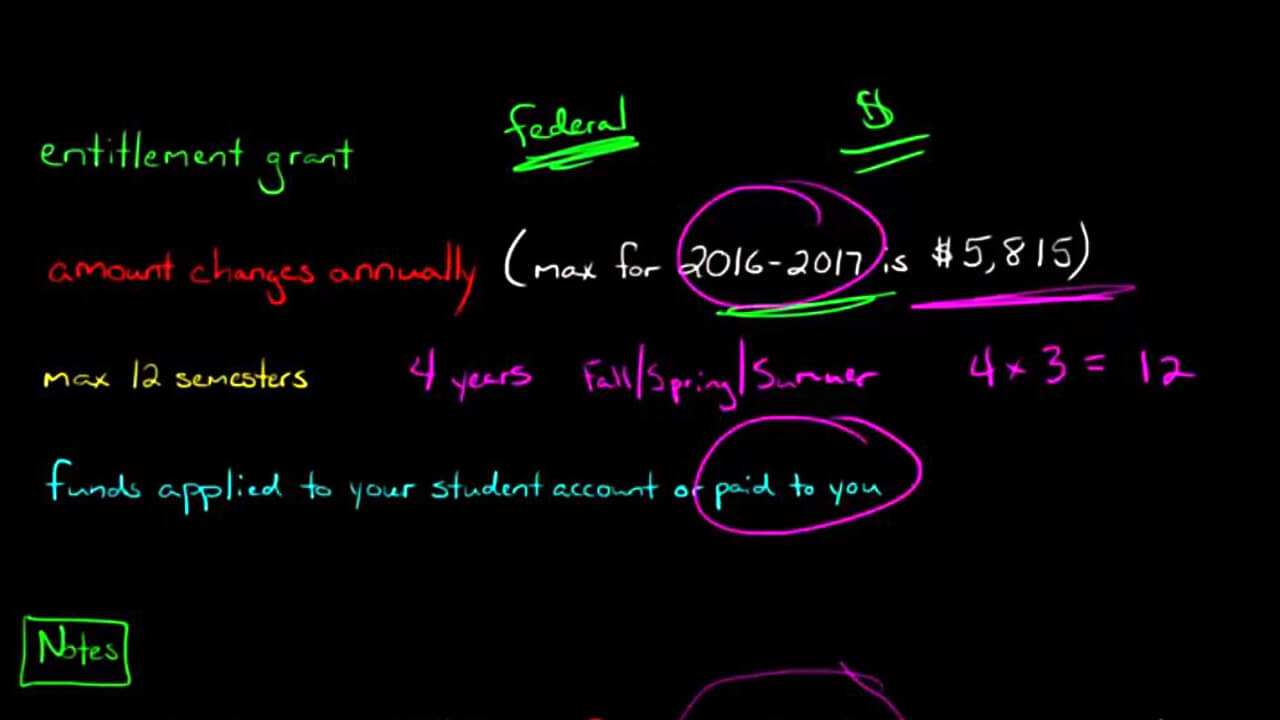 entitlement grant federal $
amount changes annually (max for 2016-2017 is $5,815)
max 12 semesters 4 years Fall/Spring/Summer 4 x 3 = 12
funds applied to your student account or paid to you
Notes